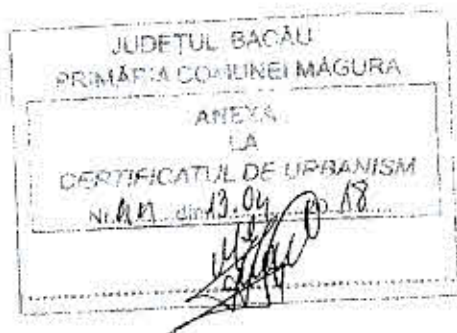 JUDEŢUL BACĂU
PRIMĂRIA COMUNEI MĂGURA
ANEXA
LA
CERTIFICATUL DE URBANISM
Nr. din 13.04 18